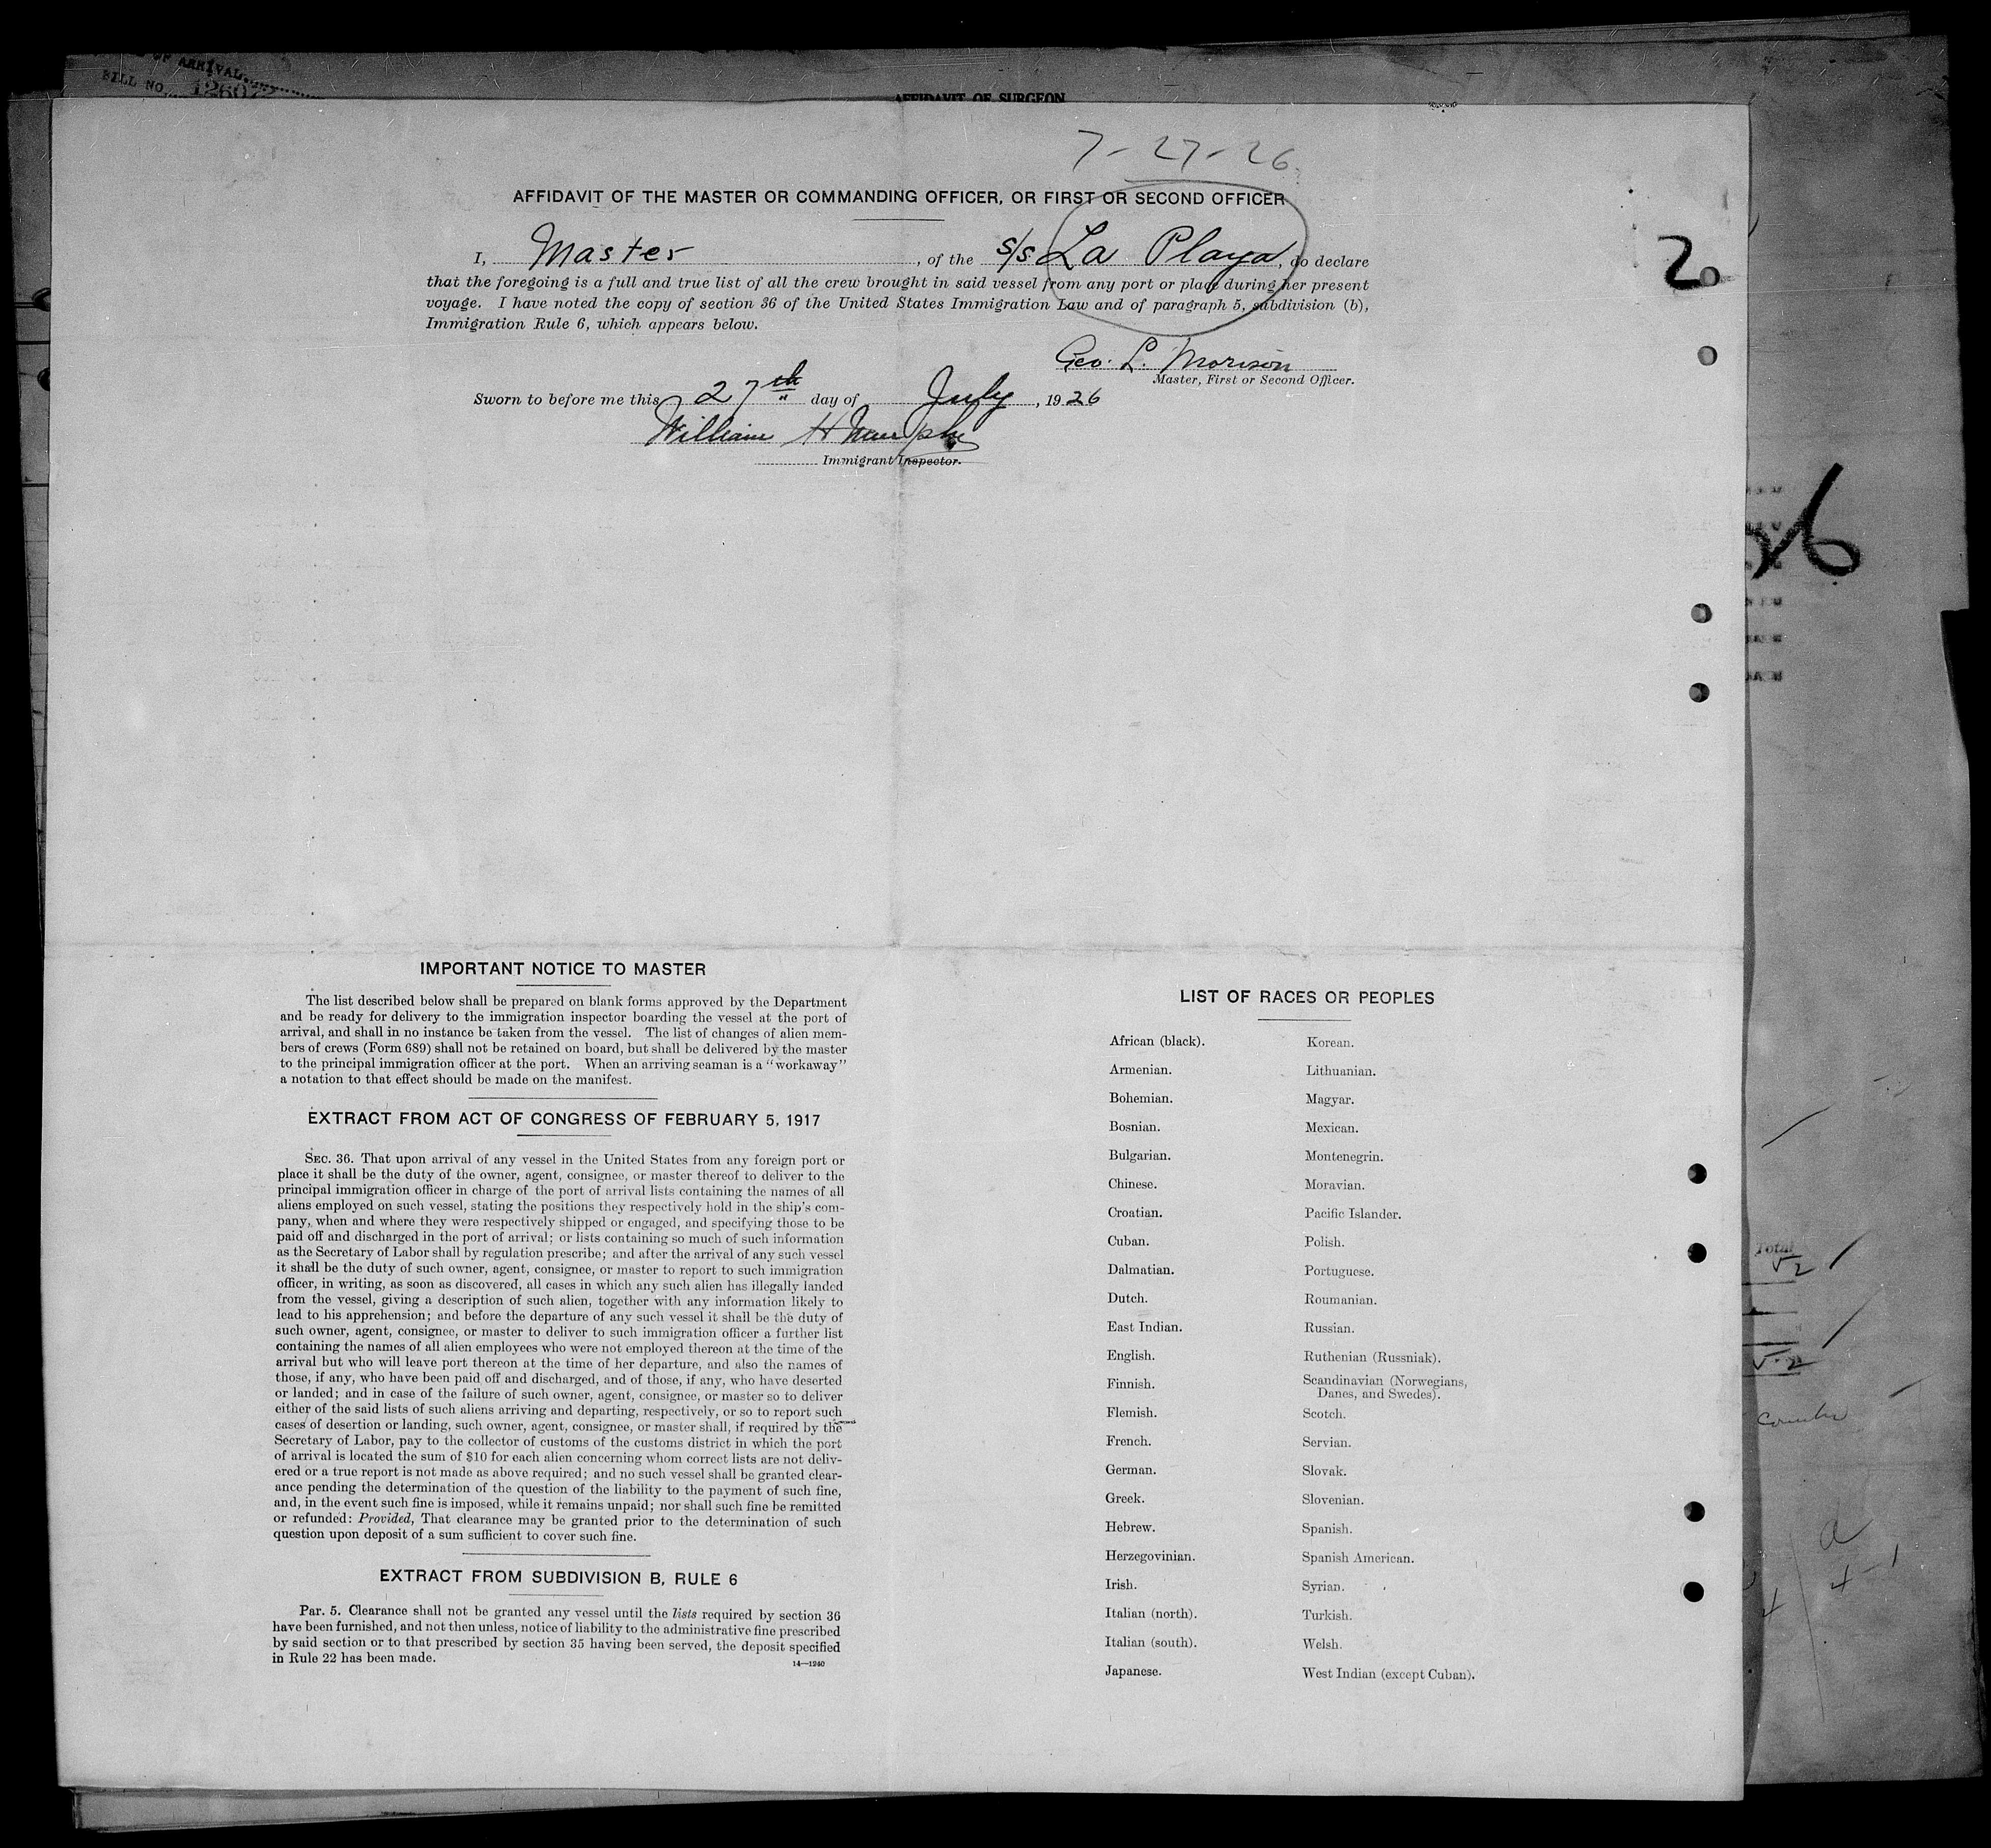 OF ARRIVAL
BILL NO. 126072
AFFIDAVIT OF SURGEON
7-27-26
AFFIDAVIT OF THE MASTER OR COMMANDING OFFICER, OR FIRST OR SECOND OFFICER
I, Master, of the S/S. La Playa, do declare
that the foregoing is a full and true list of all the crew brought in said vessel from any port or place during her present
voyage. I have noted the copy of section 36 of the United States Immigration Law and of paragraph 5, subdivision (b),
Immigration Rule 6, which appears below.
Geo. L. Morison
Master, First or Second Officer.
Sworn to before me this 27th day of July, 1926
William H Murphy
Immigrant Inspector.
20
26
IMPORTANT NOTICE TO MASTER
The list described below shall be prepared on blank forms approved by the Department
and be ready for delivery to the immigration inspector boarding the vessel at the port of
arrival, and shall in no instance be taken from the vessel. The list of changes of alien mem-
bers of crews (Form 689) shall not be retained on board, but shall be delivered by the master
to the principal immigration officer at the port. When an arriving seaman is a "workaway"
a notation to that effect should be made on the manifest.
EXTRACT FROM ACT OF CONGRESS OF FEBRUARY 5, 1917
SEC. 36. That upon arrival of any vessel in the United States from any foreign port or
place it shall be the duty of the owner, agent, consignee, or master thereof to deliver to the
principal immigration officer in charge of the port of arrival lists containing the names of all
aliens employed on such vessel, stating the positions they respectively hold in the ship's com-
pany, when and where they were respectively shipped or engaged, and specifying those to be
paid off and discharged in the port of arrival; or lists containing so much of such information
as the Secretary of Labor shall by regulation prescribe; and after the arrival of any such vessel
it shall be the duty of such owner, agent, consignee, or master to report to such immigration
officer, in writing, as soon as discovered, all cases in which any such alien has illegally landed
from the vessel, giving a description of such alien, together with any information likely to
lead to his apprehension; and before the departure of any such vessel it shall be the duty of
such owner, agent, consignee, or master to deliver to such immigration officer a further list
containing the names of all alien employees who were not employed thereon at the time of the
arrival but who will leave port thereon at the time of her departure, and also the names of
those, if any, who have been paid off and discharged, and of those, if any, who have deserted
or landed; and in case of the failure of such owner, agent, consignee, or master so to deliver
either of the said lists of such aliens arriving and departing, respectively, or so to report such
cases of desertion or landing, such owner, agent, consignee, or master shall, if required by the
Secretary of Labor, pay to the collector of customs of the customs district in which the port
of arrival is located the sum of $10 for each alien concerning whom correct lists are not deliv-
ered or a true report is not made as above required; and no such vessel shall be granted clear-
ance pending the determination of the question of the liability to the payment of such fine,
and, in the event such fine is imposed, while it remains unpaid; nor shall such fine be remitted
or refunded: Provided, That clearance may be granted prior to the determination of such
question upon deposit of a sum sufficient to cover such fine.
EXTRACT FROM SUBDIVISION B, RULE 6
Par. 5. Clearance shall not be granted any vessel until the lists required by section 36
have been furnished, and not then unless, notice of liability to the administrative fine prescribed
by said section or to that prescribed by section 35 having been served, the deposit specified
in Rule 22 has been made.
14—1240
LIST OF RACES OR PEOPLES
African (black).
Armenian.
Bohemian.
Bosnian.
Bulgarian.
Chinese.
Croatian.
Cuban.
Dalmatian.
Dutch.
East Indian.
English.
Finnish.
Flemish.
French.
German.
Greek.
Hebrew.
Herzegovinian.
Irish.
Italian (north).
Italian (south).
Japanese.
Korean.
Lithuanian.
Magyar.
Mexican.
Montenegrin.
Moravian.
Pacific Islander.
Polish.
Portuguese.
Roumanian.
Russian.
Ruthenian (Russniak).
Scandinavian (Norwegians,
Danes, and Swedes).
Scotch.
Servian.
Slovak.
Slovenian.
Spanish.
Spanish American.
Syrian.
Turkish.
Welsh.
West Indian (except Cuban).
Total